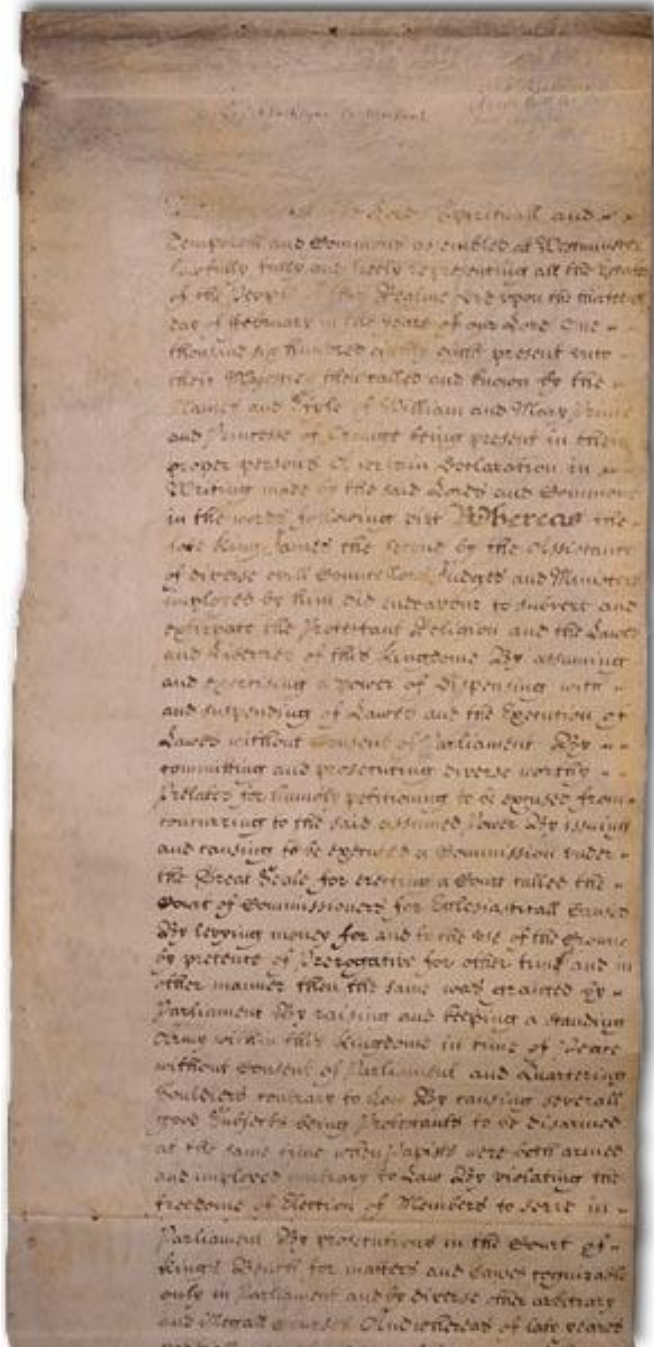 Lords Spirituall and
Temporall and Commons assembled at Westminster
lawfully fully and freely representing all the Estates
of the People of this Realme did upon the thirteenth
day of February in the yeare of our Lord One
thousand six hundred eighty eight present unto
their Majesties then called and known by the
Names and Stile of William and Mary Prince
and Princesse of Orange being present in their
proper persons a certain Declaration in
Writing made by the said Lords and Commons
in the words following vizt Whereas the
late King James the Second by the Assistance
of diverse evill Councellors Judges and Ministers
imployed by him did endeavour to subvert and
extirpate the Protestant Religion and the Lawes
and Liberties of this Kingdome By assuming
and exercising a power of Dispensing with
and suspending of Lawes and the Execution of
Lawes without Consent of Parliament By
committing and prosecuting diverse worthy
Prelates for humbly petitioning to be excused from
concurring to the said assumed Power By issuing
and causing to be executed a Commission under
the Great Seale for erecting a Court called the
Court of Commissioners for Ecclesiasticall Causes
By levying money for and to the use of the Crowne
by pretence of Prerogative for other time and in
other manner then the same was granted by
Parliament By raising and keeping a standing
Army within this Kingdome in time of Peace
without Consent of Parliament and Quartering
Souldiers contrary to Law By causing severall
good Subjects being Protestants to be disarmed
at the same time when Papists were both armed
and imployed contrary to Law By violating the
freedome of Election of Members to serve in
Parliament By prosecutions in the Court of
Kings Bench for matters and Causes cognizable
only in Parliament and by diverse other arbitrary
and Illegall courses And whereas of late yeares